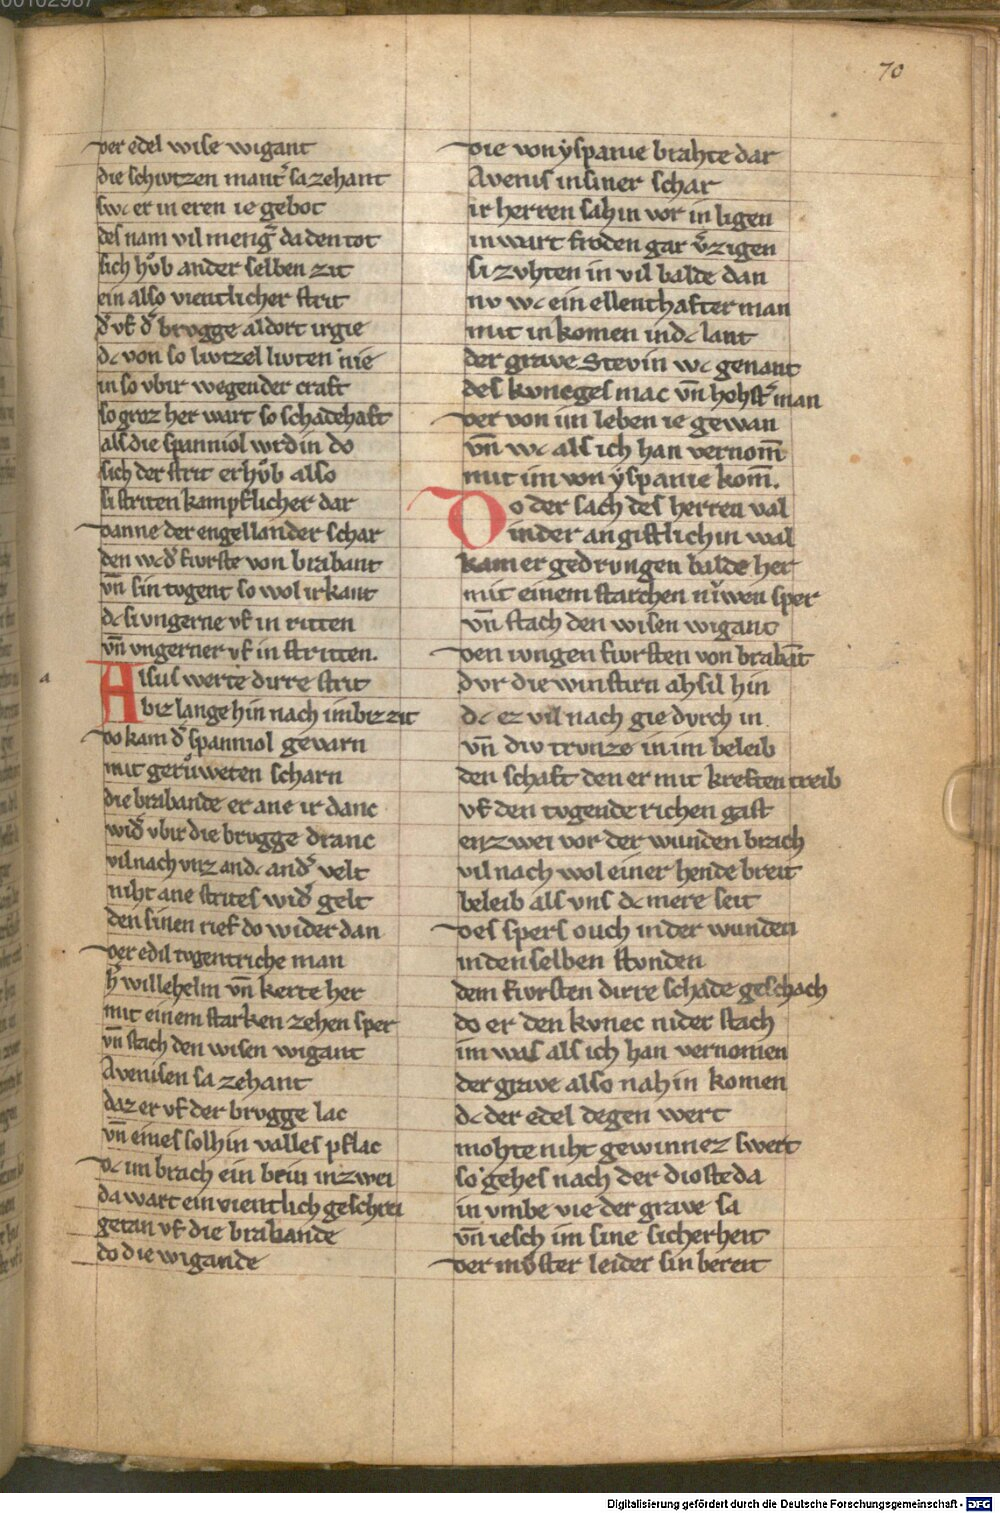 70
der edel wise wigant
die schivtzen mantˀ sa zehant
swc er in eren ie gebot
des nam vil mengˀ da den tot
sich hůb ander selben zit
ein also vientlicher strit
dˀ vf dˀ brvgge aldort irgie
dc von so livtzel livten nie
in so vbir wegender craft
so groz her wart so schadehaft
als die spanniol wrdin do
sich der strit erhůb also
si striten kampflicher dar
danne der engellander schar
den wc dˀ fivrste von brabant
vn̄ sin tvgent so wol irkant
dc si vngerne vf in ritten
vn̄ vngerner vf in stritten.
Alsus werte dirre strit
biz lange hin nach imbiz zit
do kam dˀ spanniol gevarn
mit gerůweten scharn
die brabande er ane ir danc
widˀ vbir die brvgge dranc
vil nach vnz an dc andˀ velt
niht ane strites widˀ gelt
den sinen rief do wider dan
der edil tvgentriche man
hˀ willehelm vn̄ kerte her
mit einem starken zehen sper
vn̄ stach den wisen wigant
Avenisen sa zehant
daz er vf der brvgge lac
vn̄ eines solhin valles pflac
dc im brach ein bein inzwei
da wart ein vientlich geschrei
getan vf die brabande
do die wigande
die von yspanie brahte dar
Avenis in siner schar
ir herren sahin vor in ligen
in wart froden gar vˀzigen
si zvhten in vil balde dan
nv wc ein ellenthafter man
mit in komen in dc lant
der grave Stevin wc genant
des kvneges mac vn̄ hohstˀ man
der von im leben ie gewan
vn̄ wc als ich han vernom̄
mit im von yspanie kom̄.
Do der sach des herren val
in der angistlichin wal
kam er gedrvngen balde her
mit einem starchen nˀiwen sper
vn̄ stach den wisen wigant
den ivngen fivrsten von brabāt
dvr die winstirn ahsil hin
dc ez vil nach gie dvrch in
vn̄ div trvnze in im beleib
den schaft den er mit kreften treib
vf den tvgende richen gast
enzwei vor der wunden brach
vil nach wol einer hende breit
beleib als vns dc mere seit
des spers ouch in der wunden
in den selben stonden
dem fivrsten dirre schade geschach
do er den kvnec nider stach
im was als ich han vernomen
der grave also nah in komen
dc der edel degen wert
mohte niht gewinnez swert
so gehes nach der dioste da
in vmbe vie der grave sa
vn̄ iesch im sine sicherheit
der mvster leider sin bereit
Digitalisierung gefördert durch die Deutsche Forschungsgemeinschaft - DFG